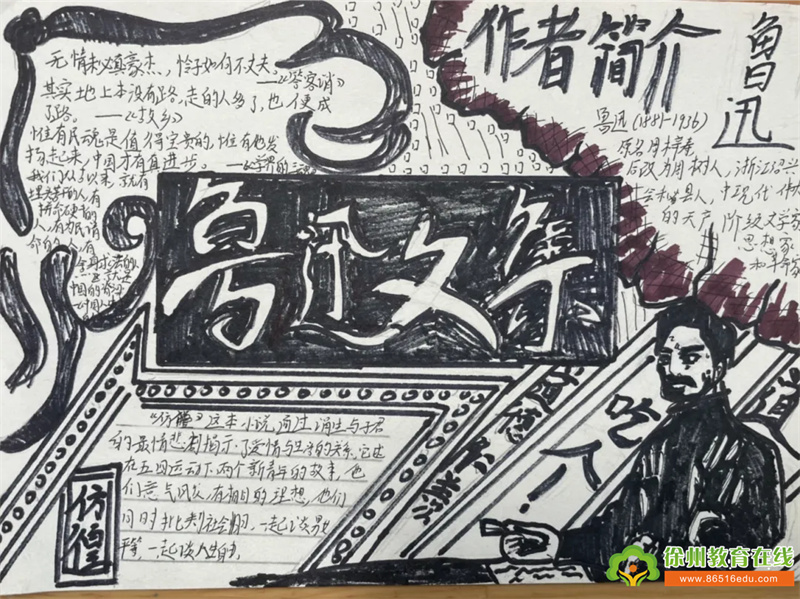 作者简介
鲁迅
无情未必真豪杰，怜子如何不丈夫。
——《答客诮》
其实地上本没有路，走的人多了，也便成
了路。——《故乡》
惟有民魂是值得宝贵的，惟有他发
扬起来，中国才有真进步。——《学界的三魂》
我们从古以来，就有
埋头苦干的人，有
拼命硬干的
人，有为民请
命的人，有
舍身求法的人
鲁迅（1881-1936）
原名周樟寿
后改为周树人，浙江绍兴
会稽县人，中国现代伟大
的无产阶级文学家
思想家
和革命家
鲁迅文集
《彷徨》这本小说，通过涓生与子君
的爱情悲剧揭示了爱情与生活的关系，它述
在五四运动下两个新青年的故事，他
们意气风发，有相同的理想，他们
同时批判社会，一起谈男女
平等，一起谈人生自由
彷徨
道德
吃人
徐州教育在线
www.86516edu.com